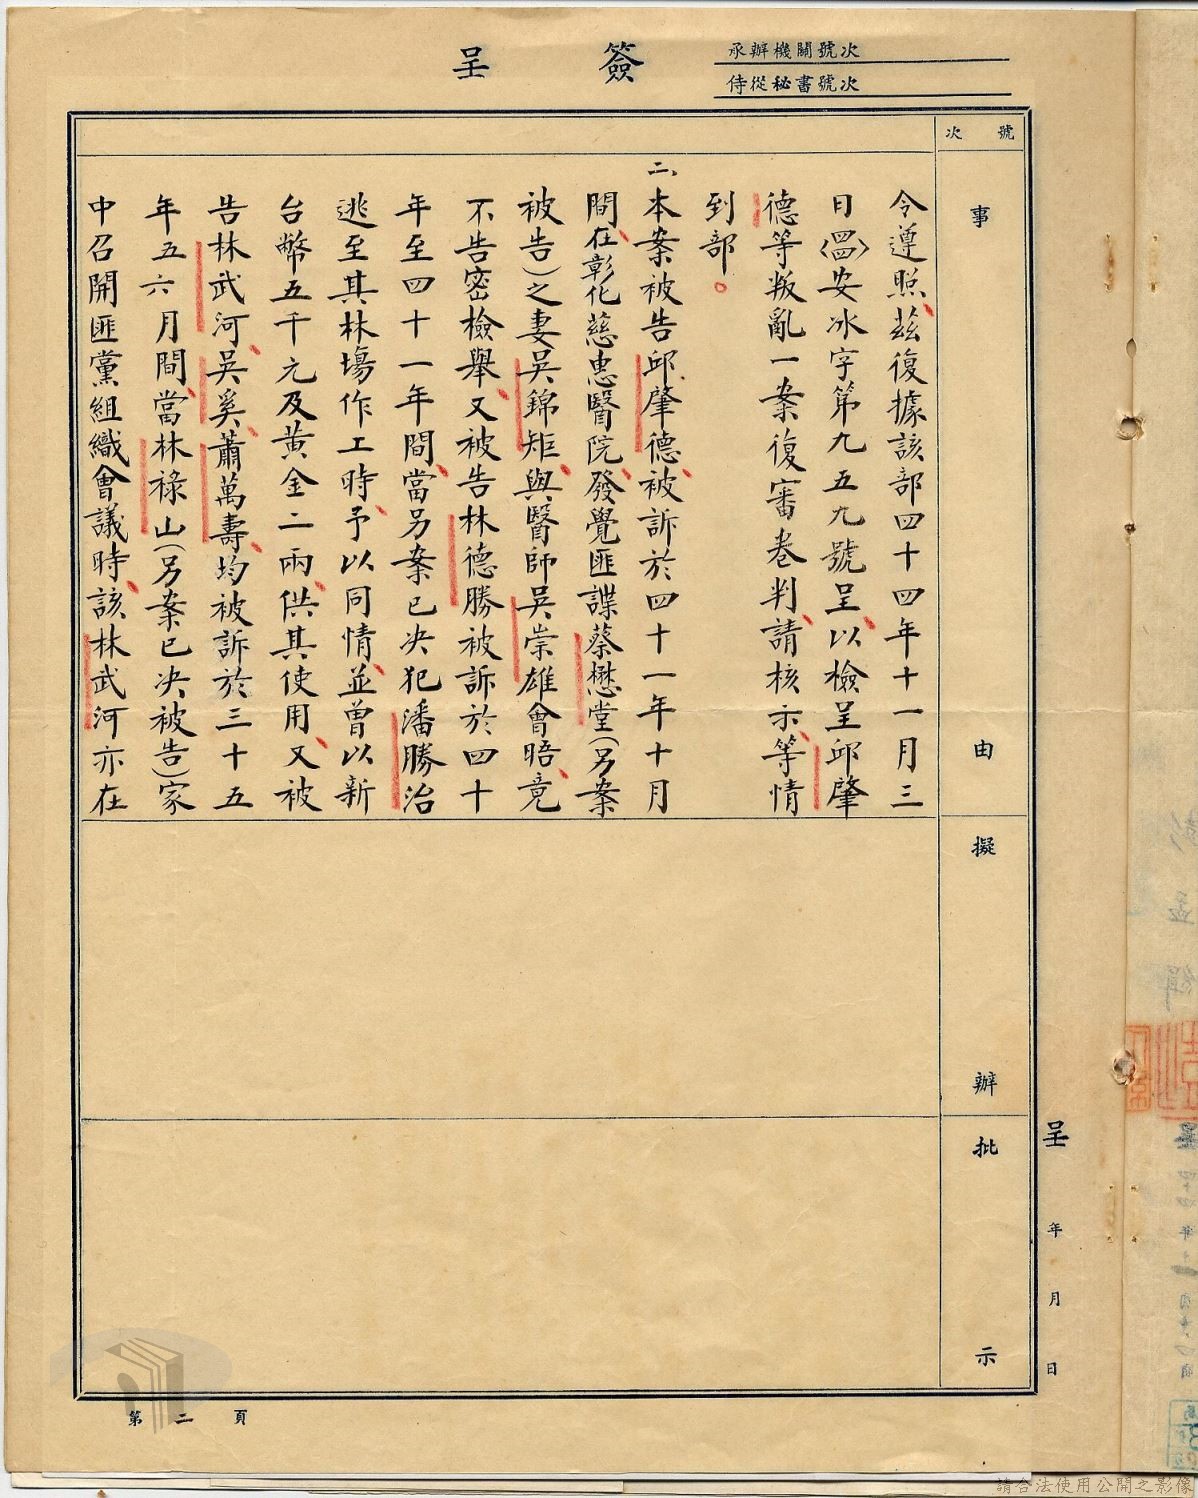 簽呈
承辦機關號次
侍從秘書號次
號次
事由
擬辦
批示
令遵照、茲復據該部四十四年十一月三
日(四四)安冰字第九五九號呈、以檢呈邱肇
德等叛亂一案復審卷判、請核示、等情
到部。
二、本案被告邱肇德、被訴於四十一年十月
間、在彰化慈惠醫院、發覺匪諜蔡懋堂(另案
被告)之妻吳錦矩、與醫師吳崇雄會晤、竟
不告密檢舉、又被告林德勝被訴於四十
年至四十一年間、當另案已決犯潘勝治
逃至其林場作工時、予以同情、並曾以新
台幣五千元及黃金二兩、供其使用、又被
告林武河、吳奚、蕭萬壽、均被訴於三十五
年五六月間、當林祿山(另案已決被告)家
中召開匪黨組織會議時、該林武河亦在
呈 年 月 日
第二頁
請合法使用公開之影像